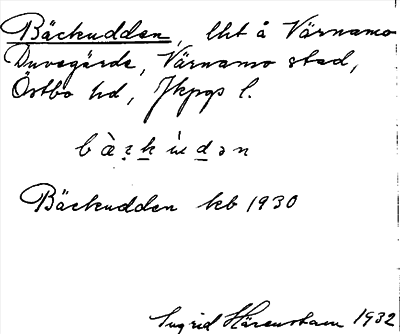 Bäckudden, lht å Värnamo
Duvegårde, Värnamo stad,
Östbo hd, Jkpgs l.
Bäckudden kb 1930
Ingrid Härenstam 1932